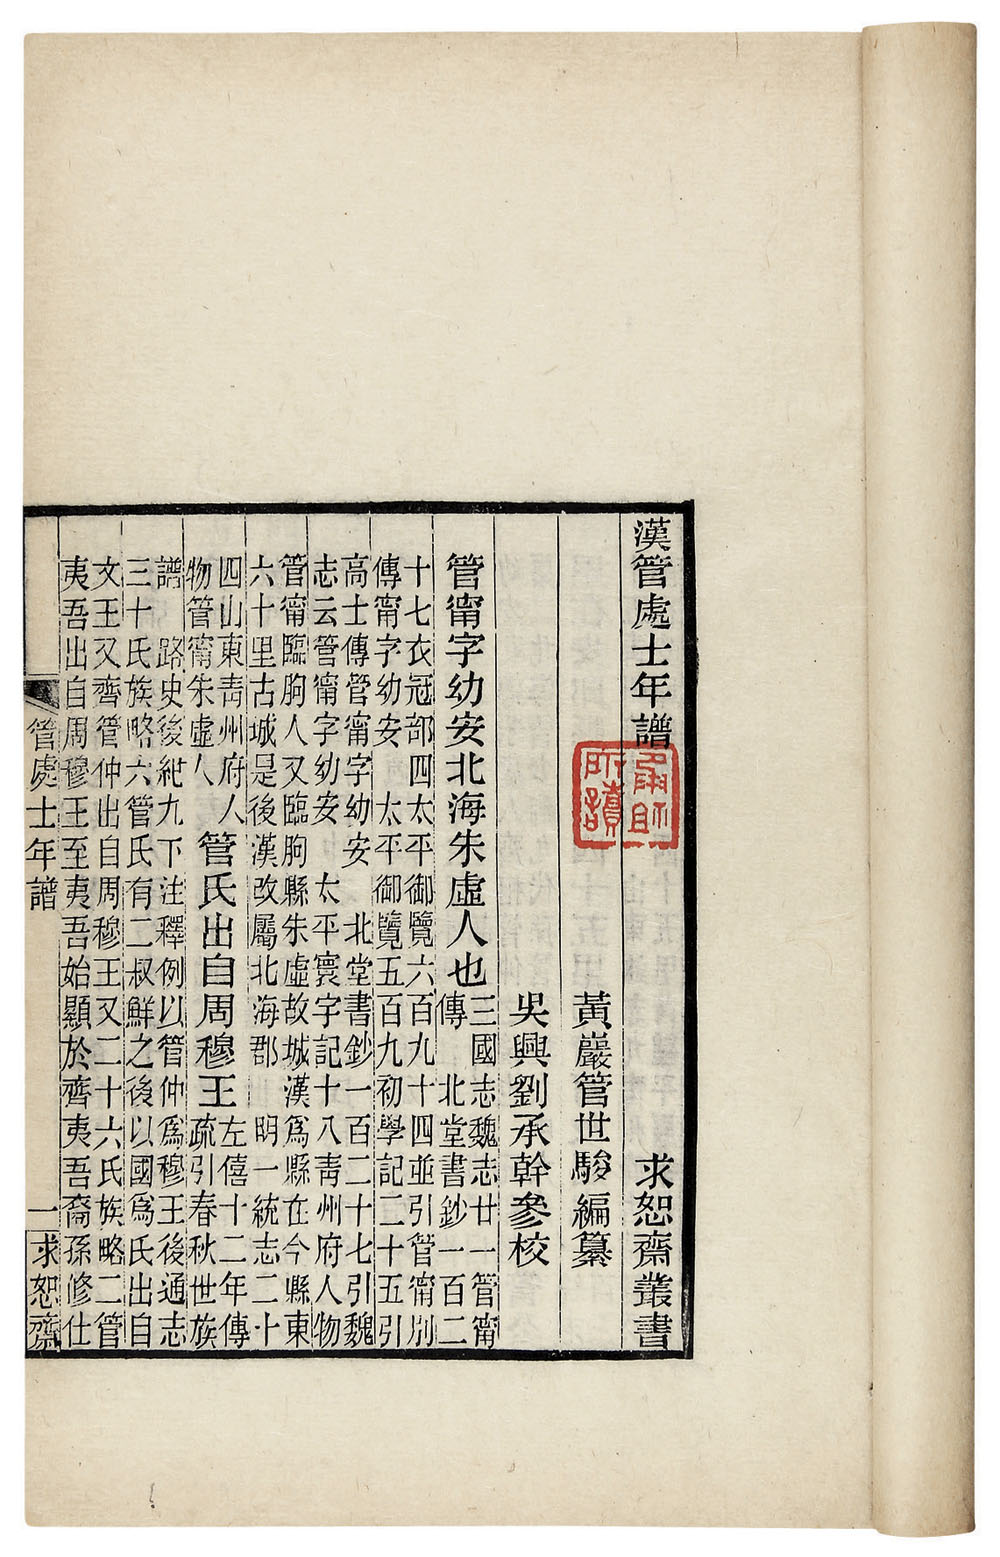 漢管處士年譜 求恕齋叢書
黃巖管世駿編纂
吳興劉承幹參校
管甯字幼安北海朱虛人也
三國志魏志廿一管甯
傳 北堂書鈔一百二
十七衣冠部四太平御覽六百九十四並引管甯別
傳甯字幼安 太平御覽五百九初學記二十五引
高士傳管甯字幼安 北堂書鈔一百二十七引魏
志云管甯字幼安 太平寰字記十八靑州府人物
管甯臨朐人又臨朐縣朱虛故城漢爲縣在今縣東
六十里古城是後漢改屬北海郡 明一統志二十
四山東靑州府人
物管甯朱虛人
管氏出自周穆王
左僖十二年傳
疏引春秋世族
譜 路史後紀九下注釋例以管仲爲穆王後通志
三十氏族略六管氏有二叔鮮之後以國爲氏出自
文王又齊管仲出自周穆王又二十六氏族略二管
夷吾出自周穆王至夷吾始顯於齊夷吾裔孫修仕
管處士年譜 一 求恕齋